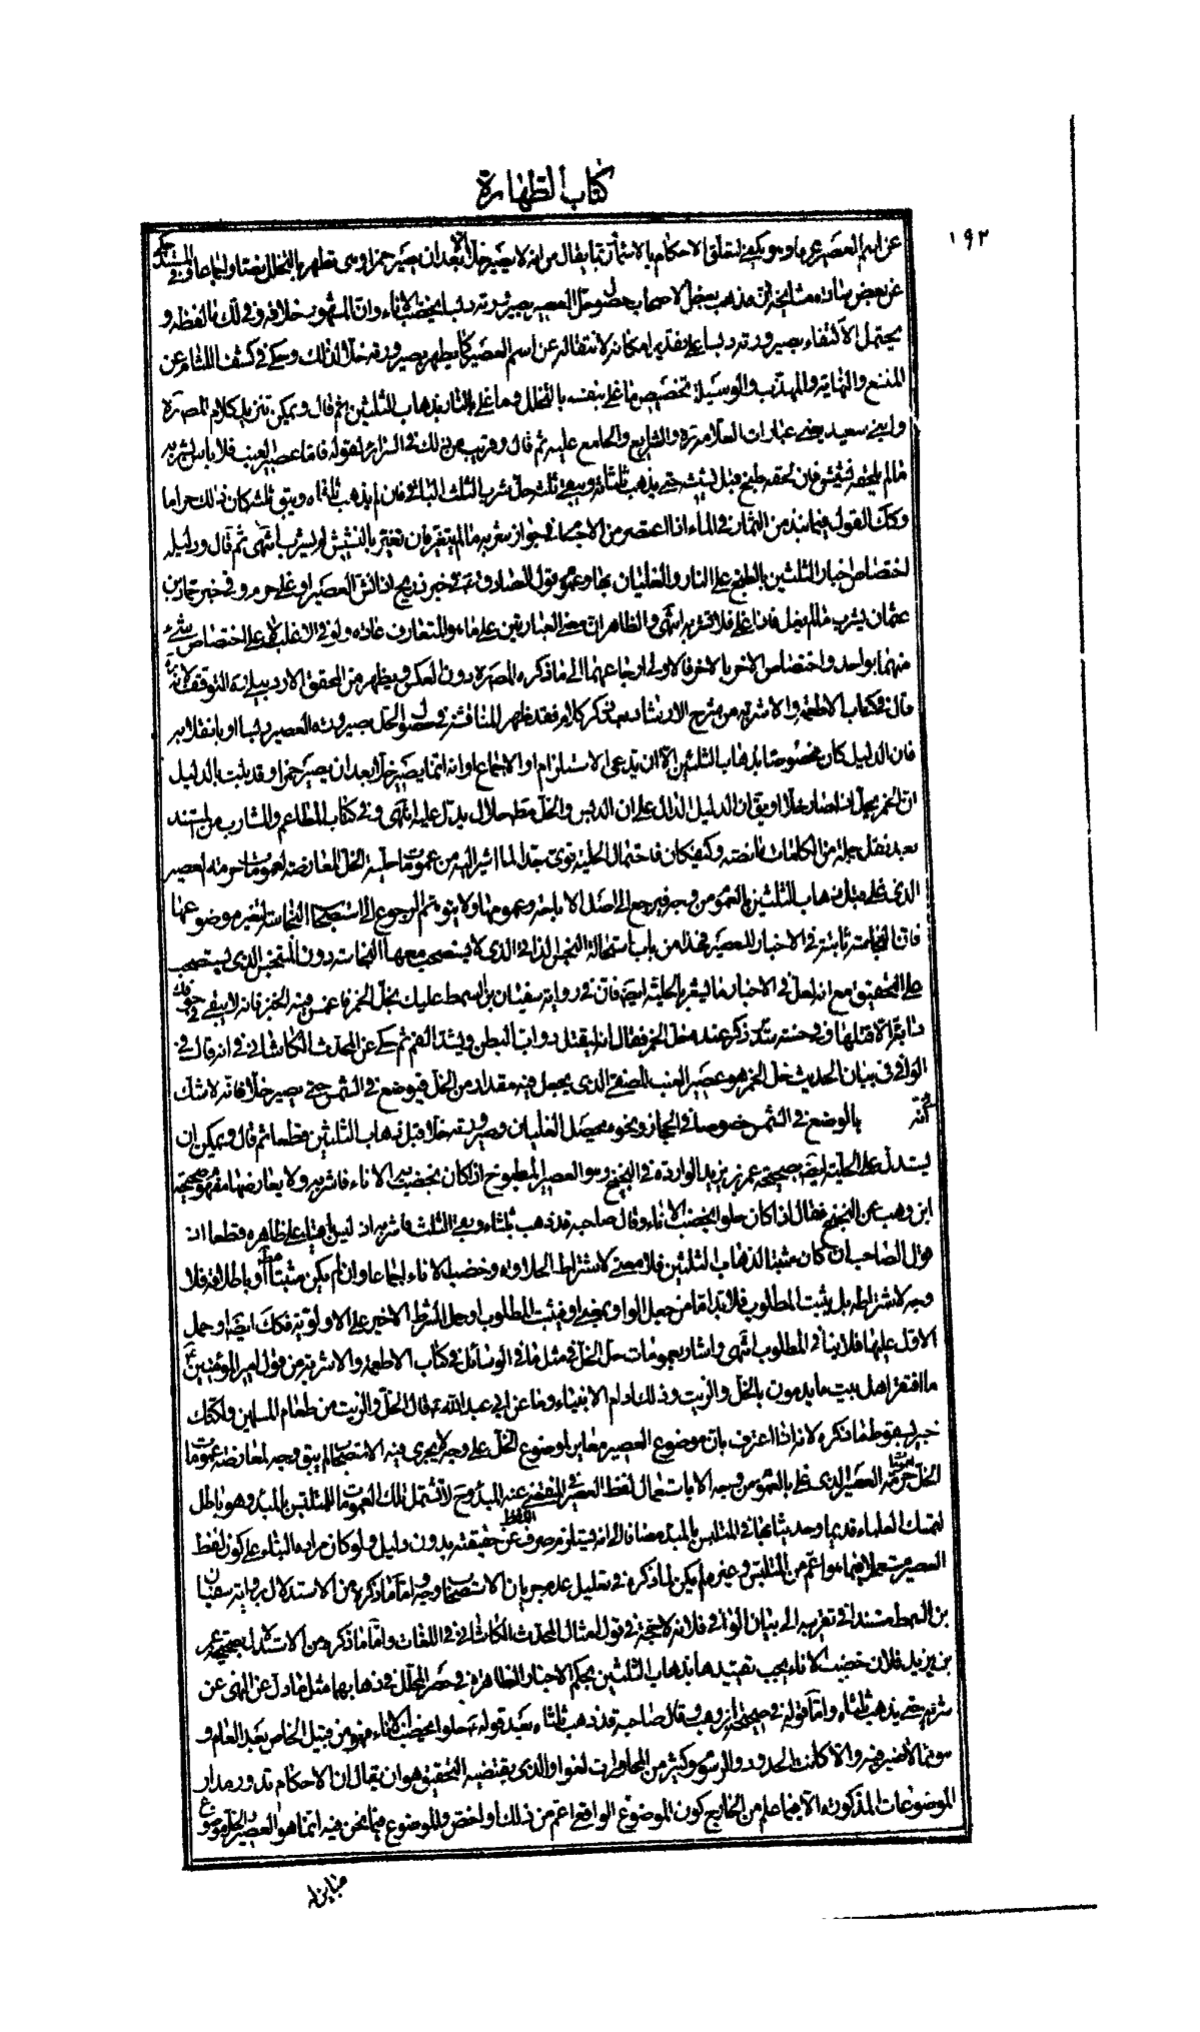 كتاب الطهارة
١٩٢
عن اسم العصير عرفا وهو يكفي لتعلق الاحكام بالاسماء ربما يقال من انه لا يصير خلا الا بعد ان يصير خمرا وحى تطهر بالتخلل نصا واجماعا وفي المستند حكى
عن بعض سادة مشايخه ان مذهب بعض الاصحاب حصول حل العصير بصيرورته دبسا يخضب الاناء وان المشهور خلافه وفي لك ما لفظه و
يحتمل الاكتفاء بصيرورته دبسا على تقدير امكانه لانتقاله عن اسم العصير كما يطهر بصيرورته خلا لذلك وحكى في كشف اللثام عن
المقنع والنهاية والمهذب والوسيلة تخصيص ما غلى بنفسه بالتخلل وما غلى بالنار بذهاب الثلثين ثم قال ويمكن تنزيل كلام المصره
وابني سعيد يعني عبارات العلامة ره والشرايع والجامع عليه ثم قال وقريب من ذلك في السرائر لقوله فاما عصير العنب فلا باس بشربه
مالم يلحقه نشيش فان لحقه طبخ قبل نشيشه حتى يذهب ثلثاه ويبقى ثلث حل شرب الثلث الباقي فان لم يذهب ثلثاه ويبق ثلثه كان ذلك حراما
وكك القول فيما نبذ من الثمار في الماء اذا اعتصر من الاجسام في جواز شربه مالم يتغير فان تغير بالنشيش لم يشرب انتهى ثم قال ودليله
اختصاص اخبار الثلثين بالطبخ على النار والغليان بها وعموم قول الصادق ع في خبر ذريح اذا نش العصير او غلى حرم وفي خبر حماد بن
عثمان يشرب مالم يغل فاذا غلى فلا تشربه انتهى والظاهر ان معنى العبارتين على ما هو المتعارف عادة ولو في الاغلب على اختصاص شيء
منهما بواحد واختصاص الاخر بالاخر فالاولى ارجاعهما الى ما ذكره المصره دون العكس ويظهر من المحقق الاردبيلي ره التوقف لانه
قال في كتاب الاطعمة والاشربة من شرح الارشاد بعد ذكر كلام فقد ظهر المناقشة في حصول الحل بصيرورته العصير دبسا او بانقلابه
فان الدليل كان مخصوصا بذهاب الثلثين الا ان يدعى الاستلزام او الاجماع او انه انما يصير خلا بعد ان يصير خمرا وقد يثبت بالدليل
ان الخمر يحل اذا صار خلا او يق ان الدليل الدال على ان الدبس والخل مطلقا حلال يدل عليه انتهى وفي كتاب المطاعم والمشارب من المستند
بعد نقل جملة من الكلمات ما نصه وكيف كان فاحتمال الحلية قوى جدا لما اشير اليه من عمومات حلية الخل المعارضة لعمومات حرمة العصير
الذي غلى قبل ذهاب الثلثين بالعموم من وجه فيرجع الى اصل الاباحة وعمومها ولا يتوهم الرجوع الى استصحاب النجاسة لتغير موضوعها
فان النجاسة ثابتة في الاخبار للعصير فهذا من باب استحالة النجس الذاتي الذي لا يستصحب معها النجاسة دون المتنجس الذي يستصحب
على التحقيق مع انه لعل في الاخبار ما يشير الحلية ايضا فان في رواية سفيان بن السمط عليك بخل الخمر فاغمس فيه الخبز فانه لا يبقى في جوفك
دابة الا قتلها وفي حسنة سدير ذكر عنده خل الخمر فقال انه ليقتل دواب البطن ويشد الفم ثم حكى عن المحدث الكاشاني في انه قال في
الوافي في بيان الحديث خل الخمر هو عصير العنب المصفى الذي يجعل فيه مقدار من الخل فيوضع في الشمس حتى يصير خلا فانه لاشك
في انه بالوضع في الشمس خصوصا في الحجاز ونحوه يحصل الغليان وصيرورته خلا قبل ذهاب الثلثين قطعا ثم قال ويمكن ان
يستدل على الحلية ايضا بصحيحة عمر بن يزيد الواردة في البختج وهو العصير المطبوخ اذا كان يخضب الاناء فاشربه ولا يعارضها مفهوم صحيحة
ابن وهب عن البختج فقال اذا كان حلوا يخضب الاناء وقال صاحبه قد ذهب ثلثاه وبقي الثلث فاشربه اذ ليس باقيا على ظاهره قطعا اذ
قول الصاحب ان كان مثبتا لذهاب الثلثين فلا معنى لاشتراط الحلاوة وخضب الاناء اجماعا وان لم يكن مثبتا مطلقا او باطلاقه فلا
وجه لاشتراطه بل يثبت المطلوب فلا بد اما من جعل الواو بمعنى او فيثبت المطلوب او حمل الشرط الاخير على الاولوية فكك ايضا او حمل
الاول عليها فلا ينافي المطلوب انتهى واشار بعمومات حل الخل في مثل ما في الوسائل في كتاب الاطعمة والاشربة من قول امير المؤمنين ع
ما افتقر اهل بيت ما يدمون بالخل والزيت وذلك ادام الانبياء وما عن ابي عبد الله ع قال الخل والزيت من طعام المسلمين ولكنك
خبير بسقوط ما ذكره لانه اذا اعترف بان موضوع العصير مغاير لموضوع الخل على وجه لا يجري فيه الاستصحاب لم يبق وجه لمعارضة عمومات
الخل حرمة العصير الذي غلى بالعموم من وجه الا باستعمال لفظ العصير في المنقضي عنه المبدء وح لا تشمل تلك العمومات للمتلبس بالمبدء وهو باطل
لتمسك العلماء قديما وحديثا بها في المتلبس بالمبدء مضافا الى انه يستلزم صرف اللفظ عن حقيقته بدون دليل ولو كان مراده البناء على كون لفظ
العصير مستعملا فيما هو اعم من المتلبس وغيره لم يكن لما ذكره في تعليل عدم جريان الاستصحاب وجه واما ما ذكره من الاستدلال برواية سفيان
بن السمط مستندا في تقريبه الى بيان الوافي فلانه لا حجة في قول امثال المحدث الكاشاني في اللغات واما ما ذكره من الاستدلال بصحيحة عمر
بن يزيد فلان خضب الاناء يجب تقييدها بذهاب الثلثين بحكم الاخبار الظاهرة في حصر المحلل في ذهابهما مثل ما دل عن النهي عن
شربه حتى يذهب ثلثاه واما قوله في صحيحة ابن وهب وقال صاحبه قد ذهب ثلثاه بعد قوله ع حلوا يخضب الاناء فهو من قبيل الخاص بعد العام و
هو مما لا ضير فيه والا كانت الحدود والرسوم وكثير من المحاورات لغوا والذي يقتضيه التحقيق هو ان يقال ان الاحكام تدور مدار
الموضوعات المذكورة الا فيما علم من الخارج كون الموضوع الواقعي اعم من ذلك او اخص والموضوع فيما نحن فيه انما هو العصير والخل موضوع
مباين له